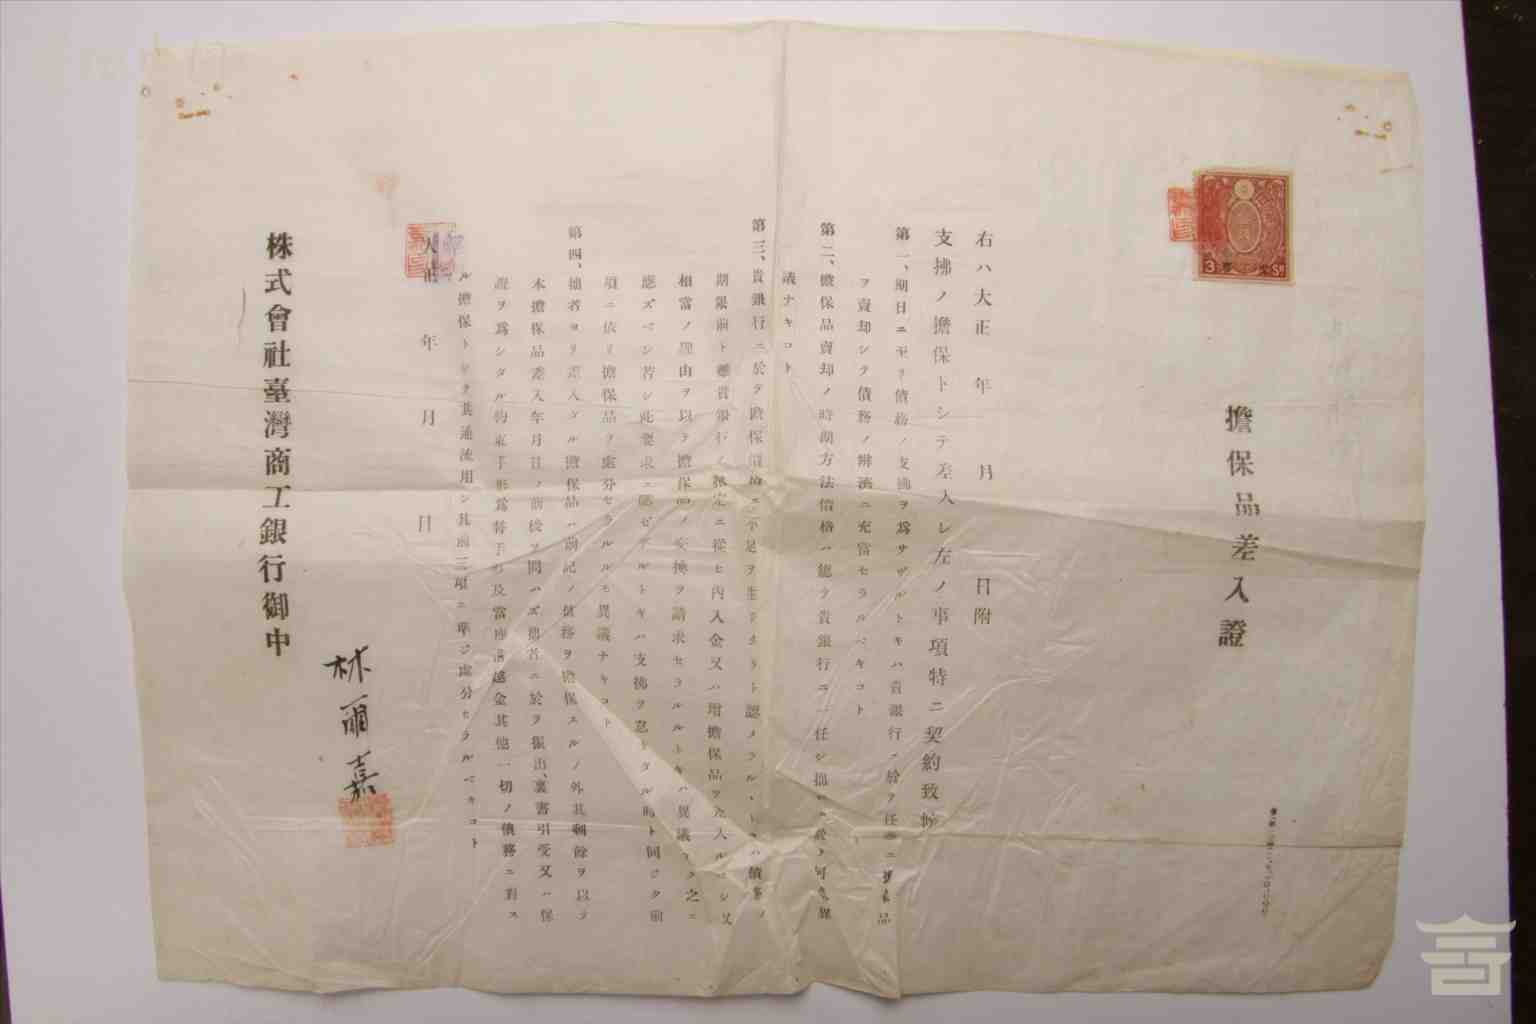 擔保品差入證
右ハ大正 年 月 日附
支拂ノ擔保トシテ差入レ左ノ事項特ニ契約致候
第一、期日ニ至リ債務ノ支拂ヲ爲サヾルトキハ貴銀行ニ於テ任意ニ擔保品
ヲ賣却シテ債務ノ辨濟ニ充當セラルベキコト
第二、擔保品賣却ノ時期方法價格ハ總テ貴銀行ニ一任シ拙者ニ於テ何等異
議ナキコト
第三、貴銀行ニ於テ擔保價格ニ不足ヲ生ジタリト認メラルヽトキハ債務ノ
期限前ト雖貴銀行ノ指定ニ從ヒ内入金又ハ增擔保品ヲ差入ルベシ又
相當ノ理由ヲ以テ擔保品ノ交換ヲ請求セラルルトキハ異議ナク之ニ
應ズベシ若シ此要求ニ應ゼザルトキハ支拂ヲ怠リタル時ト同ジク前
項ニ依リ擔保品ヲ處分セラルルモ異議ナキコト
第四、拙者ヨリ差入タル擔保品ハ前記ノ債務ヲ擔保スルノ外其剩餘ヲ以テ
本擔保品差入年月日ノ前後ヲ問ハズ拙者ニ於テ振出、裏書引受又ハ保
證ヲ爲シタル約束手形爲替手形及當座借越金其他一切ノ債務ニ對ス
ル擔保トシテ共通流用シ其前三項ニ準ジ處分セラルベキコト
大正 年 月 日
林爾嘉
株式會社臺灣商工銀行御中
3 Sⁿ